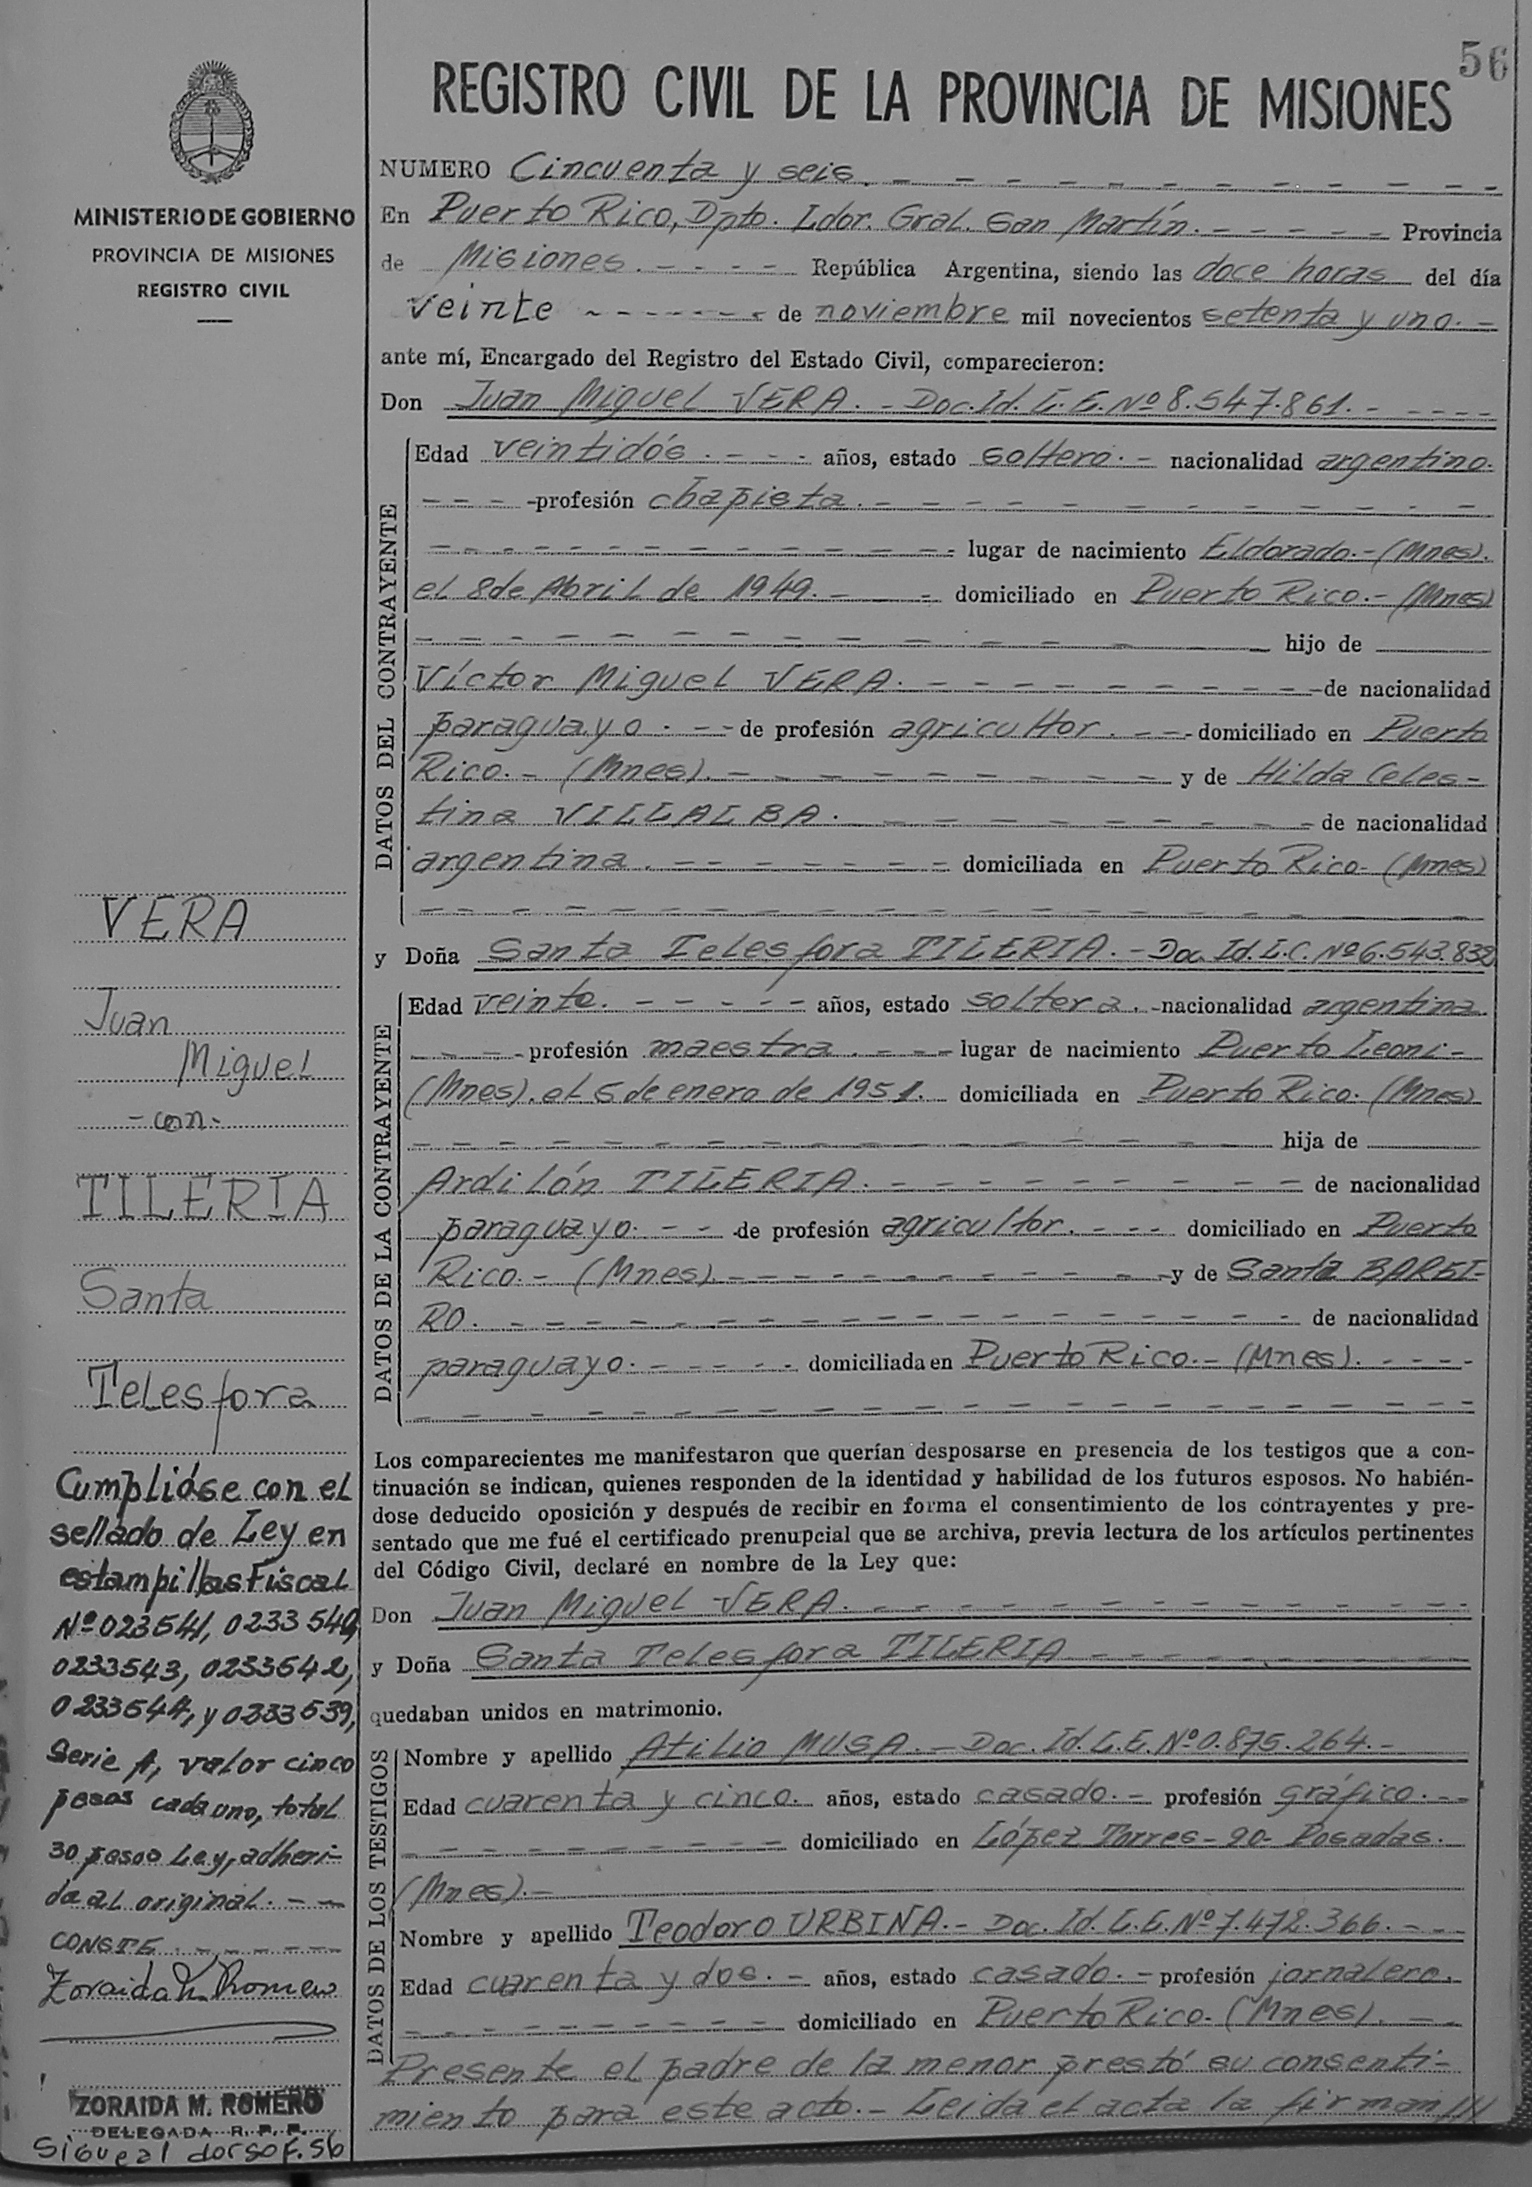 56
REGISTRO CIVIL DE LA PROVINCIA DE MISIONES
MINISTERIO DE GOBIERNO
PROVINCIA DE MISIONES
REGISTRO CIVIL
NUMERO Cincuenta y seis. - - - - - - - - - - -
En Puerto Rico, Dpto. Ldor. Gral. San Martín. - - - - - Provincia
de Misiones. - - - - República Argentina, siendo las doce horas del día
veinte - - - - - - - de noviembre mil novecientos setenta y uno. -
ante mí, Encargado del Registro del Estado Civil, comparecieron:
Don Juan Miguel VERA. - Doc. Id. L.E. Nº 8.547.861. - - - - -
DATOS DEL CONTRAYENTE
Edad veintidós. - - - años, estado soltero. - nacionalidad argentino.
- - - - profesión chapista. - - - - - - - - - - -
- - - - - - - - - - - - - lugar de nacimiento Eldorado. - (Mnes).
el 8 de Abril de 1949. - - - domiciliado en Puerto Rico. - (Mnes)
- - - - - - - - - - - - - - hijo de
Víctor Miguel VERA. - - - - - - - - - - de nacionalidad
paraguayo. - - de profesión agricultor. - - - domiciliado en Puerto
Rico. - (Mnes). - - - - - - - - - - y de Hilda Celes-
tina VILLALBA. - - - - - - - - - - de nacionalidad
argentina. - - - - - - - - domiciliada en Puerto Rico - (Mnes)
- - - - - - - - - - - - - - - - - - - -
y Doña Santa Telesfora TILERIA. - Doc. Id. L.C. Nº 6.543.832
DATOS DE LA CONTRAYENTE
Edad veinte. - - - - - años, estado soltera. - nacionalidad argentina
- - - - profesión maestra. - - - - lugar de nacimiento Puerto Leoni -
(Mnes). el 5 de enero de 1951. domiciliada en Puerto Rico. (Mnes)
- - - - - - - - - - - - - - - hija de
Ardilón TILERIA. - - - - - - - - - - de nacionalidad
paraguayo. - - - de profesión agricultor. - - - domiciliado en Puerto
Rico. - (Mnes). - - - - - - - - - - y de Santa BAREI-
RO. - - - - - - - - - - - - - - - - - de nacionalidad
paraguayo. - - - - - domiciliada en Puerto Rico. - (Mnes). - - - -
- - - - - - - - - - - - - - - - - - - -
Los comparecientes me manifestaron que querían desposarse en presencia de los testigos que a con-
tinuación se indican, quienes responden de la identidad y habilidad de los futuros esposos. No habién-
dose deducido oposición y después de recibir en forma el consentimiento de los contrayentes y pre-
sentado que me fué el certificado prenupcial que se archiva, previa lectura de los artículos pertinentes
del Código Civil, declaré en nombre de la Ley que:
Don Juan Miguel VERA. - - - - - - - - - - - - - -
y Doña Santa Telesfora TILERIA - - - - - - - - - -
quedaban unidos en matrimonio.
DATOS DE LOS TESTIGOS
Nombre y apellido Atilio MUSA. - Doc. Id. L.E. Nº 0.875.264. -
Edad cuarenta y cinco. años, estado casado. - profesión gráfico. - -
- - - - - - - - - - domiciliado en López Torres - 90 - Posadas.
(Mnes). -
Nombre y apellido Teodoro URBINA. - Doc. Id. L.E. Nº 7.472.366. - -
Edad cuarenta y dos. - años, estado casado. - profesión jornalero.
- - - - - - - - - - domiciliado en Puerto Rico. (Mnes). - -
Presente el padre de la menor prestó su consenti-
miento para este acto. - Leída el acta la firman ///
VERA
Juan
Miguel
- con -
TILERIA
Santa
Telesfora
Cumplióse con el
sellado de Ley en
estampillas Fiscal
Nº 023541, 0233540,
0233543, 0233542,
0233544, y 0233539,
Serie A, valor cinco
pesos cada uno, total
30 pesos Ley, adheri-
da al original. - - -
CONSTE. - - - - - -
Zoraida M. Romero
ZORAIDA M. ROMERO
DELEGADA R. P. P.
Sigue al dorso F. 56